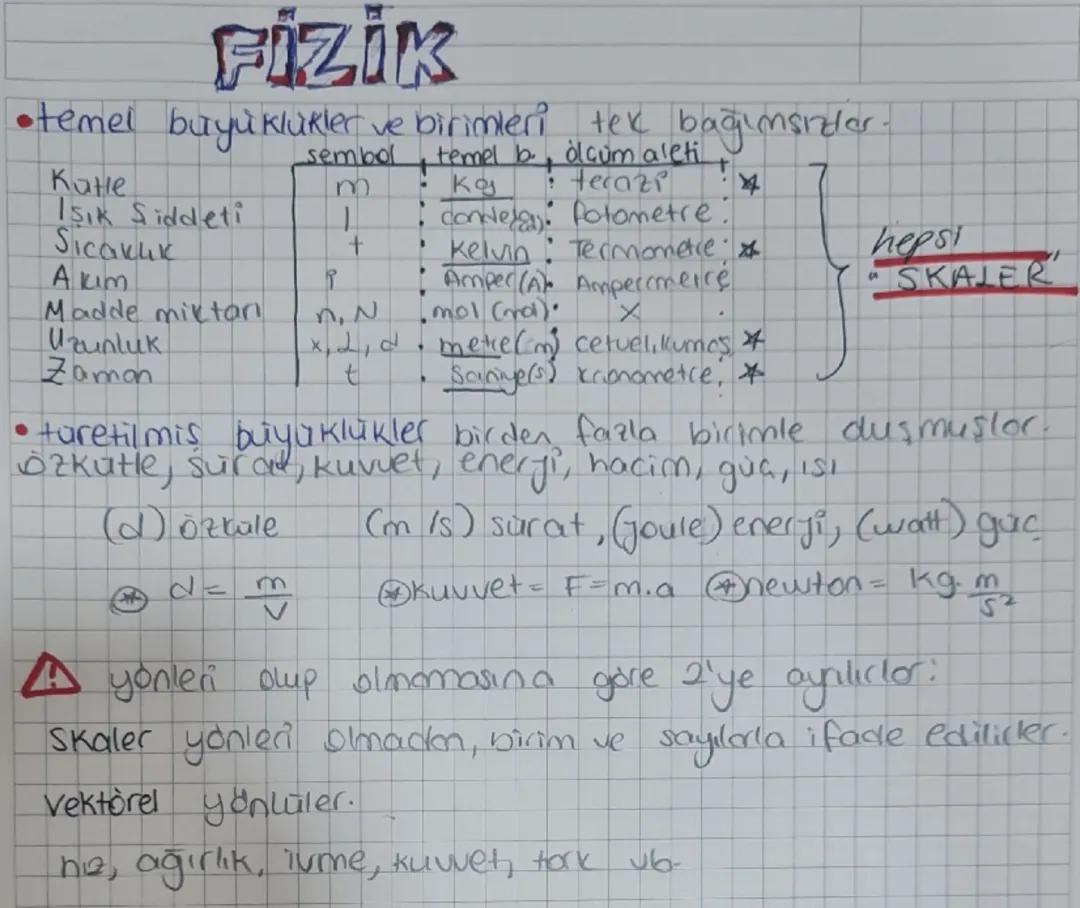 FİZİK
•temel büyüklükler ve birimleri tek bağımsızlar.
sembol, temel b., ölçüm aleti
Kütle m : Kg : terazi : *
Işık Şiddeti I : candela : fotometre :
Sıcaklık t : Kelvin : Termometre : *
Akım i : Amper (A) : Ampermetre
Madde miktarı n, N . mol (mol) . X .
Uzunluk x, L, d . metre(m) cetvel, kumaş *
Zaman t . Saniye(s) kronometre, *
hepsi
"SKALER"
•türetilmiş büyüklükler birden fazla birimle oluşmuşlar.
özkütle, sürat, kuvvet, enerji, hacim, güç, ısı
(d) özküle (m/s) sürat, (joule) enerji, (watt) güç
* d = m/V *kuvvet = F=m.a *newton = kg. m/s²
! yönleri olup olmamasına göre 2'ye ayrılırlar:
Skaler yönleri olmadan, birim ve sayılarla ifade edilirler.
Vektörel yönlüler.
hız, ağırlık, ivme, kuvvet, tork vb.